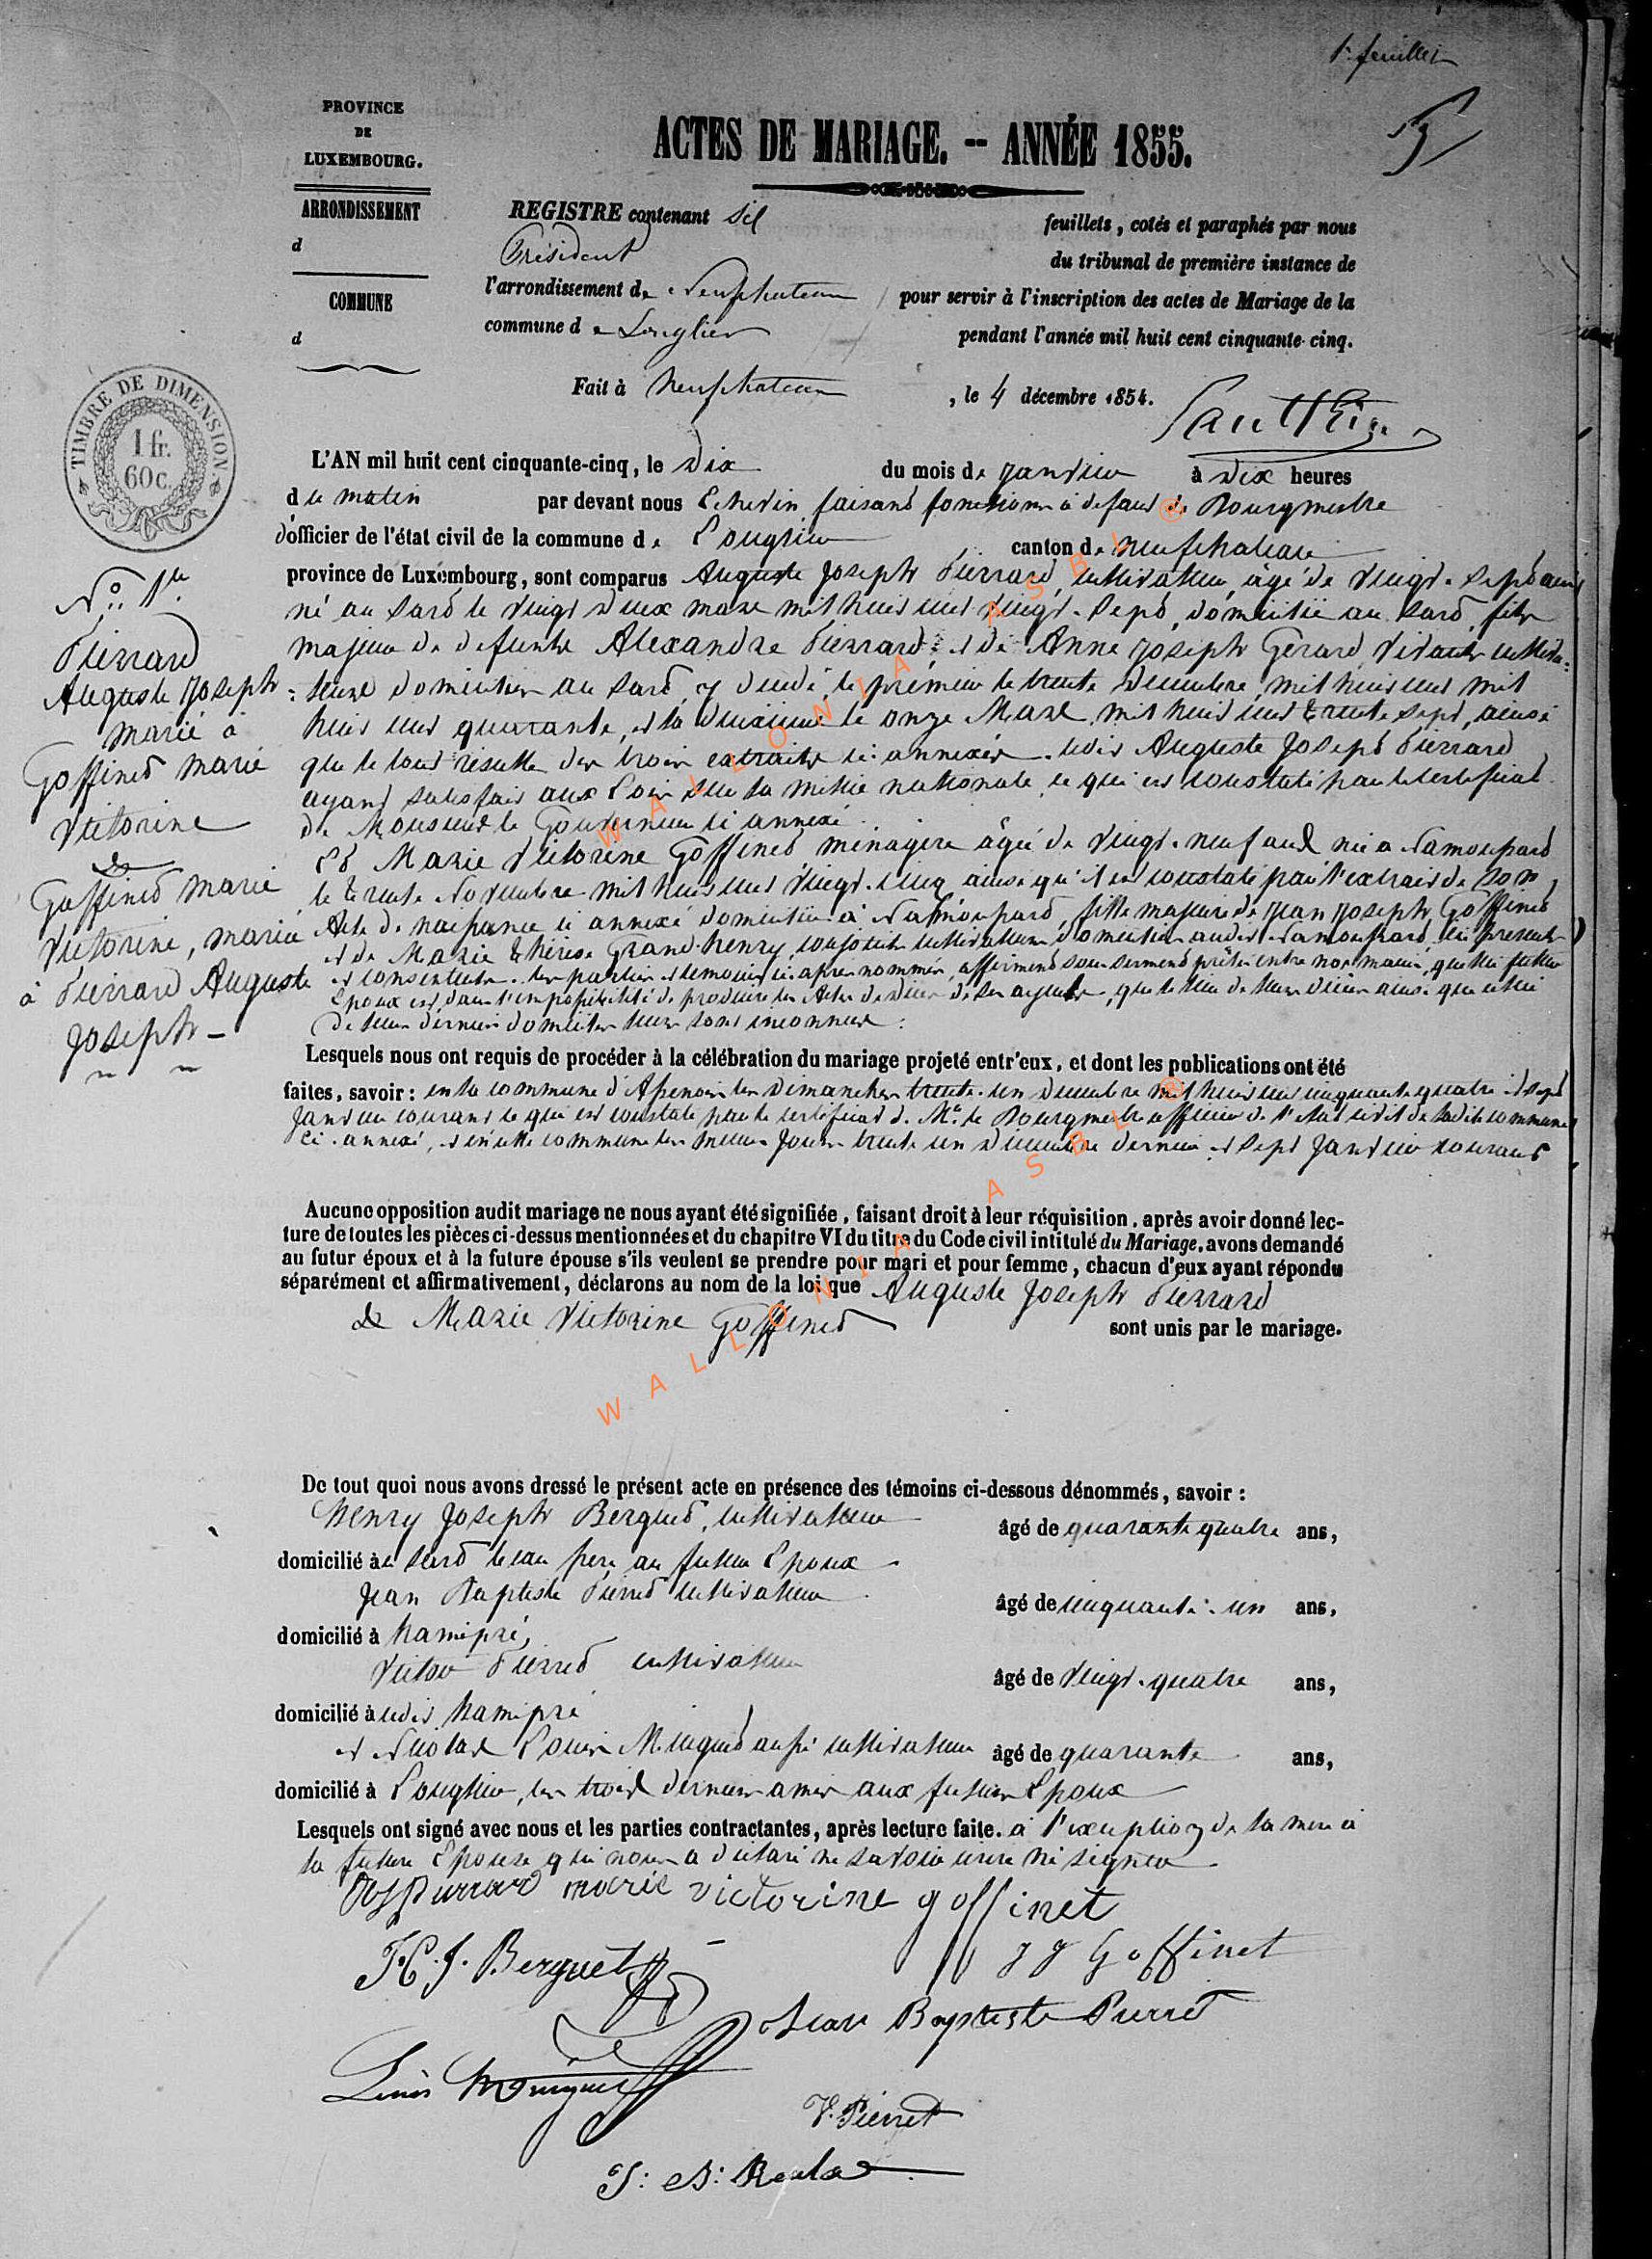 1r. feuillet
PROVINCE
DE
LUXEMBOURG.
ACTES DE MARIAGE. -- ANNÉE 1855.
ARRONDISSEMENT
d
COMMUNE
d
REGISTRE contenant six feuillets, cotés et paraphés par nous
Président du tribunal de première instance de
l'arrondissement de Neufchateau pour servir à l'inscription des actes de Mariage de la
commune de Longlier pendant l'année mil huit cent cinquante-cinq.
Fait à Neufchateau, le 4 décembre 1854.
TIMBRE DE DIMENSION
1 fr.
60 c.
L'AN mil huit cent cinquante-cinq, le dix du mois de Janvier à dix heures
du matin par devant nous Echevin faisant fonctions à defaut de Bourgmestre
d'officier de l'état civil de la commune de Longlier canton de Neufchateau
province de Luxembourg, sont comparus Auguste Joseph Pierrard, cultivateur, âgé de vingt-sept ans
né au Sart le vingt deux mars mil huit cent vingt-sept, domicilié au Sart, fils
majeur de defunts Alexandre Pierrard et de Anne Joseph Gerard, vivants cultiva=
=teurs domiciliés au Sart, y décédé, le premier le trente Decembre, mil huit cent mil
huit cent quarante, et la deuxième le onze Mars, mil huit cent trente sept, ainsi
que le tout résulte des trois extraits ci-annexés. ledit Auguste Joseph Pierrard
ayant satisfait aux Lois sur la milice nationale, ce qui est constaté par le certificat
de Monsieur le Gouverneur ci annexé.
Et Marie Victorine Goffinet, ménagère âgée de vingt-neuf ans née à Namoussart
le trente Novembre mil huit cent vingt-cinq ainsi qu'il est constaté par l'extrait de son
Acte de naissance ci annexé domiciliée à Namoussart, fille majeure de Jean Joseph Goffinet
et de Marie Thérèse Grand-henry, conjoints cultivateurs, domiciliés audit Namoussart, ici présents
et consentants. les parties et temoins ci-après nommés, affirment sous serment prêté entre nos mains, que le futur
Epoux est dans l'impossibilité de produire les Actes de décès de ses ayeuls, que le lieu de leur décès ainsi que celui
de leur dernier domicile leur sont inconnus :
No. 1er
Pierrard
Auguste Joseph
marié à
Goffinet marie
Victorine
&
Goffinet Marie
Victorine, mariée
à Pierrard Auguste
Joseph -
Lesquels nous ont requis de procéder à la célébration du mariage projeté entr'eux, et dont les publications ont été
faites, savoir : en la commune d'Assenois les Dimanches trente-un Decembre mil huit cent cinquante quatre et sept
Janvier courant ce qui est constaté par le certificat de Mr. le Bourgmestre officier de l'etat civil de ladite commune
ci-annexé, et en cette commune les memes Jours trente un Decembre dernier et sept Janvier courant
Aucune opposition audit mariage ne nous ayant été signifiée, faisant droit à leur réquisition, après avoir donné lec-
ture de toutes les pièces ci-dessus mentionnées et du chapitre VI du titre du Code civil intitulé du Mariage, avons demandé
au futur époux et à la future épouse s'ils veulent se prendre pour mari et pour femme, chacun d'eux ayant répondu
séparément et affirmativement, déclarons au nom de la loi que Auguste Joseph Pierrard
& Marie Victorine Goffinet sont unis par le mariage.
De tout quoi nous avons dressé le présent acte en présence des témoins ci-dessous dénommés, savoir :
Henry Joseph Berguet, cultivateur âgé de quarante quatre ans,
domicilié au Sart beau frere au futur Epoux
Jean Baptiste Pierret cultivateur âgé de cinquante-un ans,
domicilié à hamipré,
Victor Pierret cultivateur âgé de vingt-quatre ans,
domicilié audit hamipré
et Nicolas Louis Minguet aussi cultivateur âgé de quarante ans,
domicilié à Longlier, les trois derniers amis aux futurs Epoux
Lesquels ont signé avec nous et les parties contractantes, après lecture faite. à l'exception de la mere à
la future Epouse qui nous a déclaré ne savoir ecrire ni signer.
marie victorine goffinet
H. J. Berguet
J J Goffinet
Jean Baptiste Pierret
Louis Minguet
V. Pierret
WALLONIA ASBL @
WALLONIA ASBL @